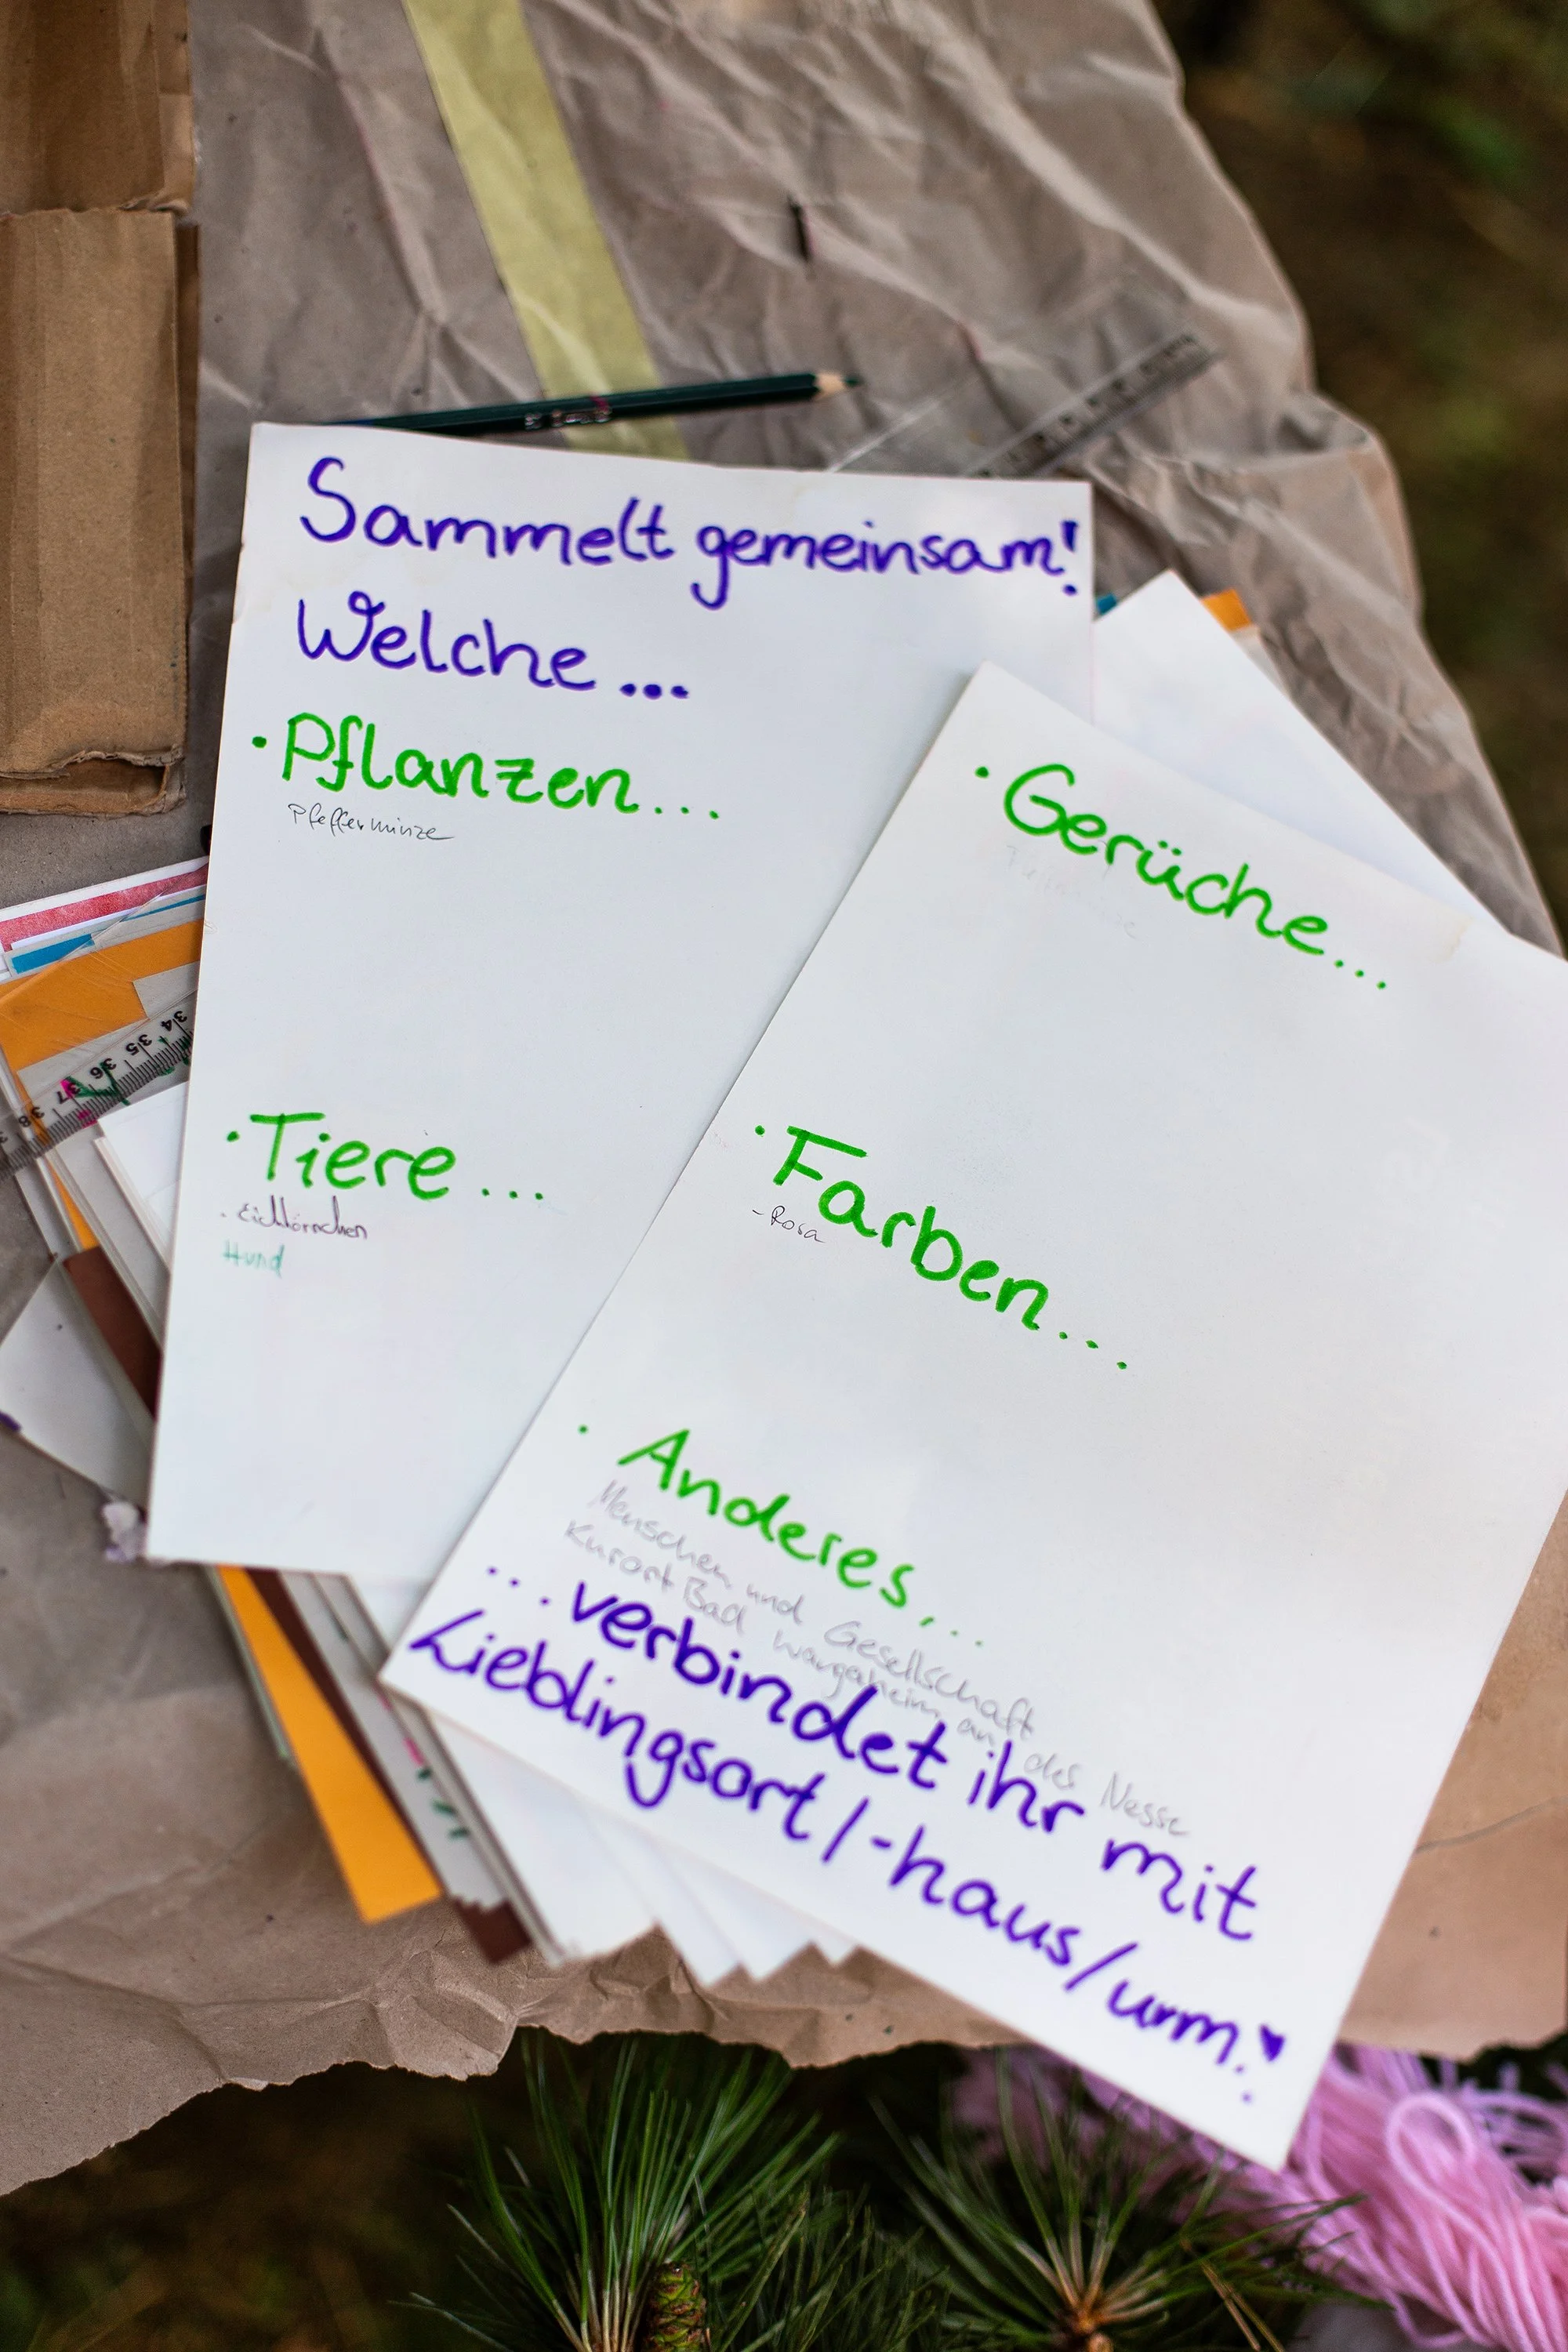 Sammelt gemeinsam!
Welche...
· Pflanzen...
Pfefferminze
· Tiere...
· Eichhörnchen
Hund
· Gerüche...
· Farben...
- Rosa
· Anderes...
Menschen und Gesellschaft
Kurort Bad an des Nesse
...verbindet ihr mit
Lieblingsort/-haus/urm?
34
35
36
37
38